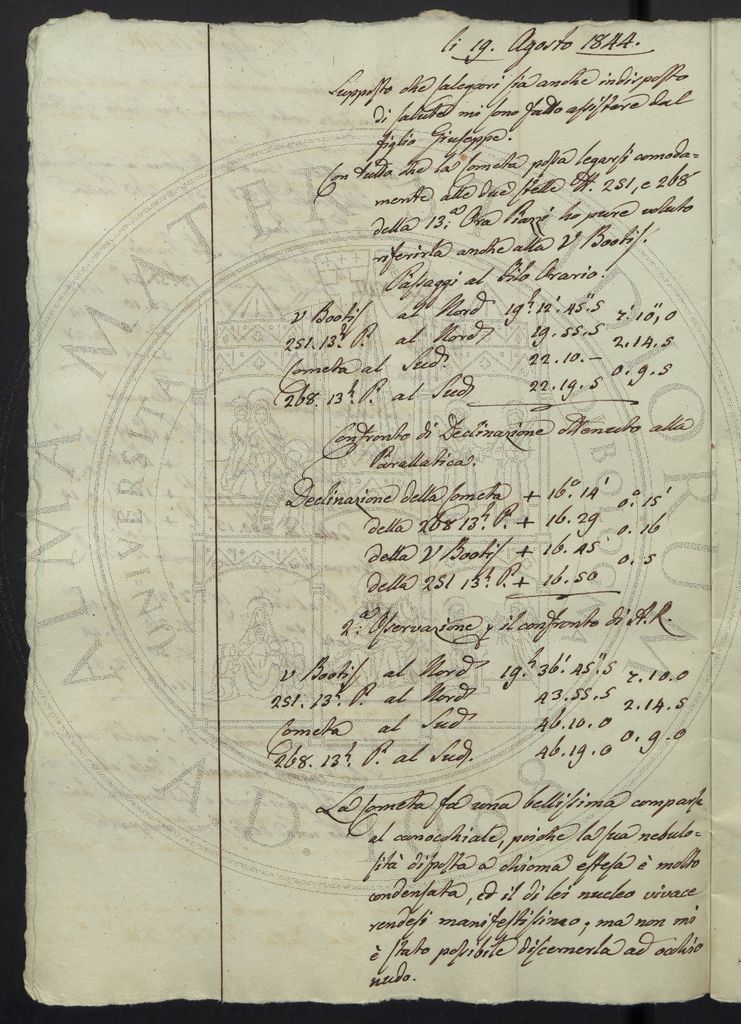 li 19. Agosto 1844.
Supposto che Calegari sia anche indisposto
di salute mi sono fatto assistere dal
figlio Giuseppe.
Con tutto che la Cometa possa legarsi comoda=
mente alle due stelle N. 251, e 268
della 13.a Ora Piazzi ho pure voluto
riferirla anche alla υ Bootis.
Passaggi al Filo Orario.
υ Bootis al Nord 19h 12'. 45".5 7'. 10",0
251. 13h P. al Nord 19.55.5 2.14.5
Cometa al Sud. 22.10.— 0.9.5
268. 13h P. al Sud 22.19.5
Confronto di Declinazione ottenuto alla
Parallatica.
Declinazione della Cometa + 16°. 14' 0°. 15'
della 268 13h P. + 16.29 0.16
della υ Bootis + 16.45 0.5
della 251 13h P. + 16.50
2.a Osservazione il confronto di A.R.
υ Bootis al Nord 19h 36'. 45".5 7.10.0
251. 13h P. al Nord 43.55.5 2.14.5
Cometa al Sud 46.10.0 0.9.0
268. 13h P. al Sud. 46.19.0
La Cometa fa una bellissima comparsa
al canocchiale, poichè la sua nebulo=
sità disposta a chioma estesa è molto
condensata, ed il di lei nucleo vivace
rendesi manifestissimo; ma non mi
è stato possibile discernerla ad occhio
nudo.
ALMA MATER STUDIORUM
UNIVERSITÀ DI BOLOGNA